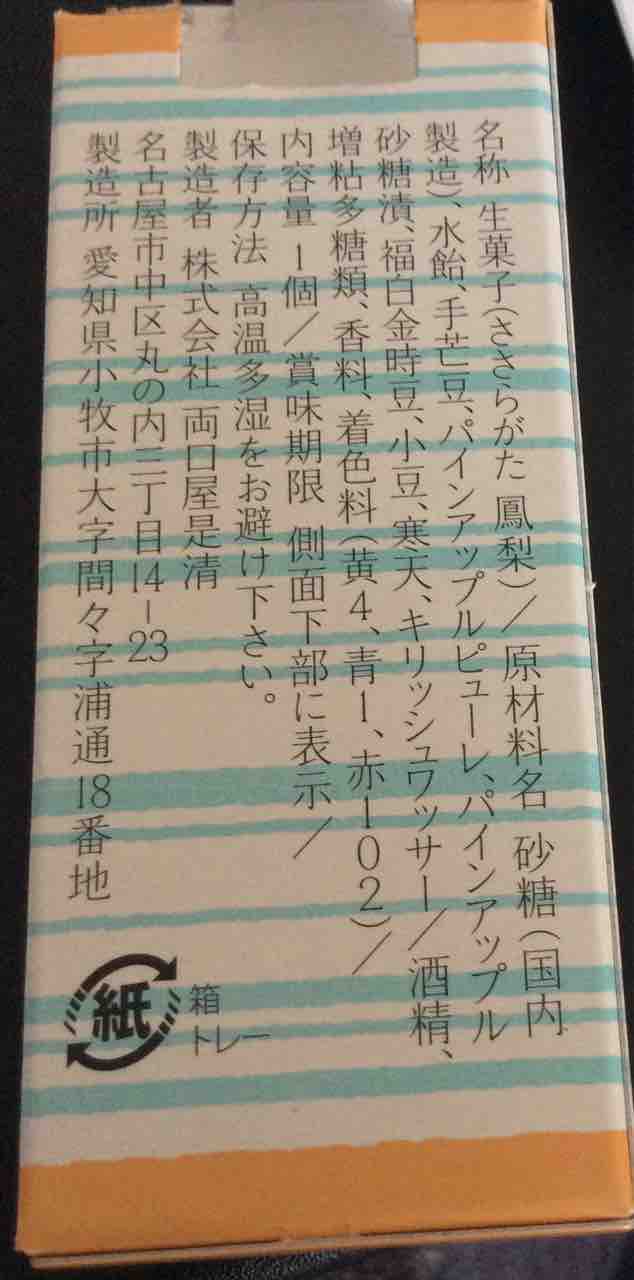 名称 生菓子(ささらがた 鳳梨)／原材料名 砂糖(国内
製造)、水飴、手芒豆、パインアップルピューレ、パインアップル
砂糖漬、福白金時豆、小豆、寒天、キリッシュワッサー／酒精、
増粘多糖類、香料、着色料(黄4、青1、赤102)／
内容量 1個／賞味期限 側面下部に表示／
保存方法 高温多湿をお避け下さい。
製造者 株式会社 両口屋是清
名古屋市中区丸の内三丁目14-23
製造所 愛知県小牧市大字間々字浦通18番地
紙
箱
トレー